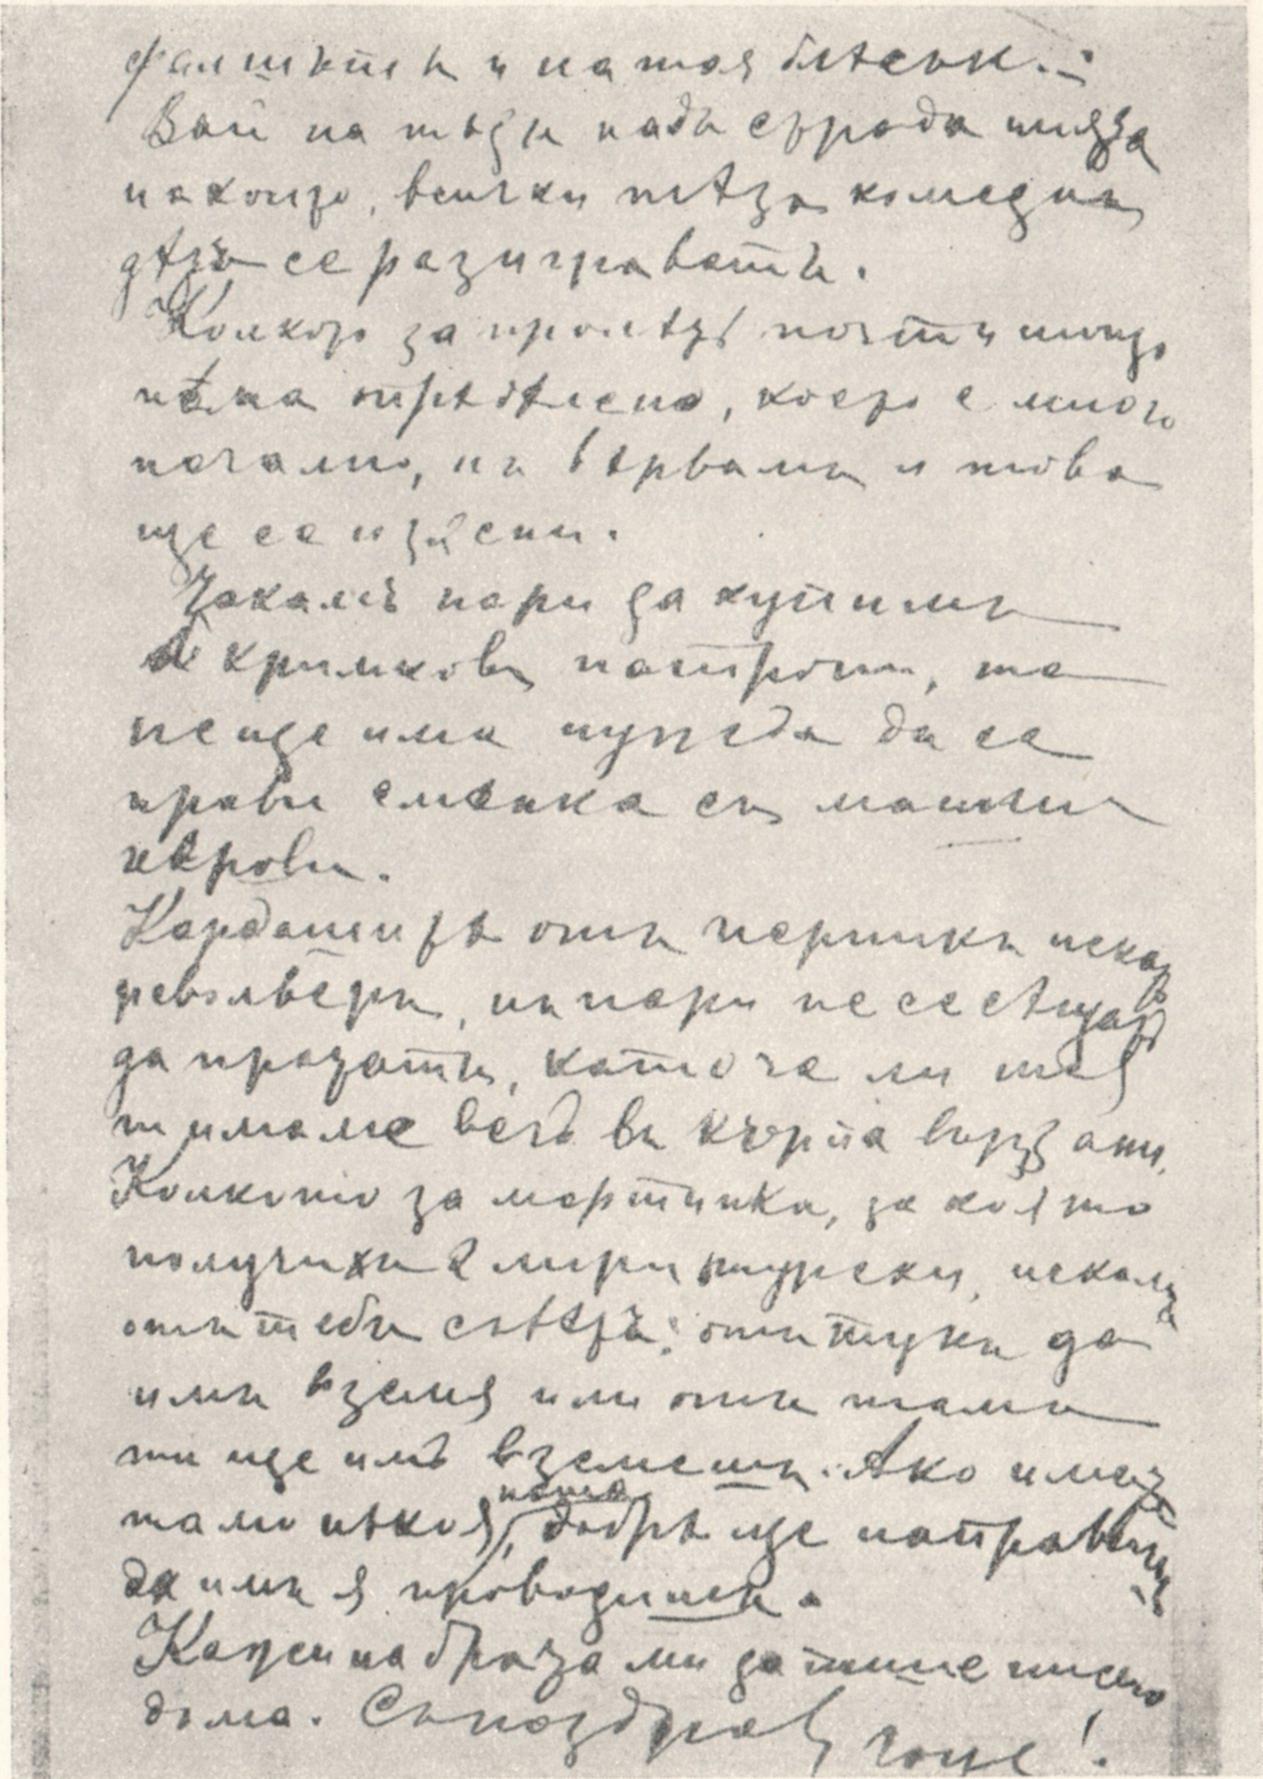 фалшътъ и на тоя блѣсѫк.
Вай на тъзи клада сърода
на която, всички тѣзъ комедии
дѣто се разиграватъ.
Колкото за пролѣтъ почти нищо
нѣма опрѣдѣлено, което е много
печално, нъ вѣрвамъ и това
ще се изясни.
Чакамъ пари да купимъ
кримкови патрони, та
не ще има нужда да се
прави смѣнка съ манли-
херови.
Кардашитѣ отъ перинъ искатъ
револвери, нъ пари не се сѣщатъ
да пратятъ, като че ли тия
ти имаме вечъ въ кърпа вързани.
Колкото за мартинка, за която
получихъ 2 лири турски, искамъ
отъ тебе съвѣтъ: отъ тукъ да
имъ взема или отъ тамъ
ти ще имъ вземешъ. Ако имате
тамо нѣкоя ваша, добрѣ ще направите
да имъ я проводишъ.
Кажи на брата ми да пише писмо
дома. Съ поздрав Гоце!